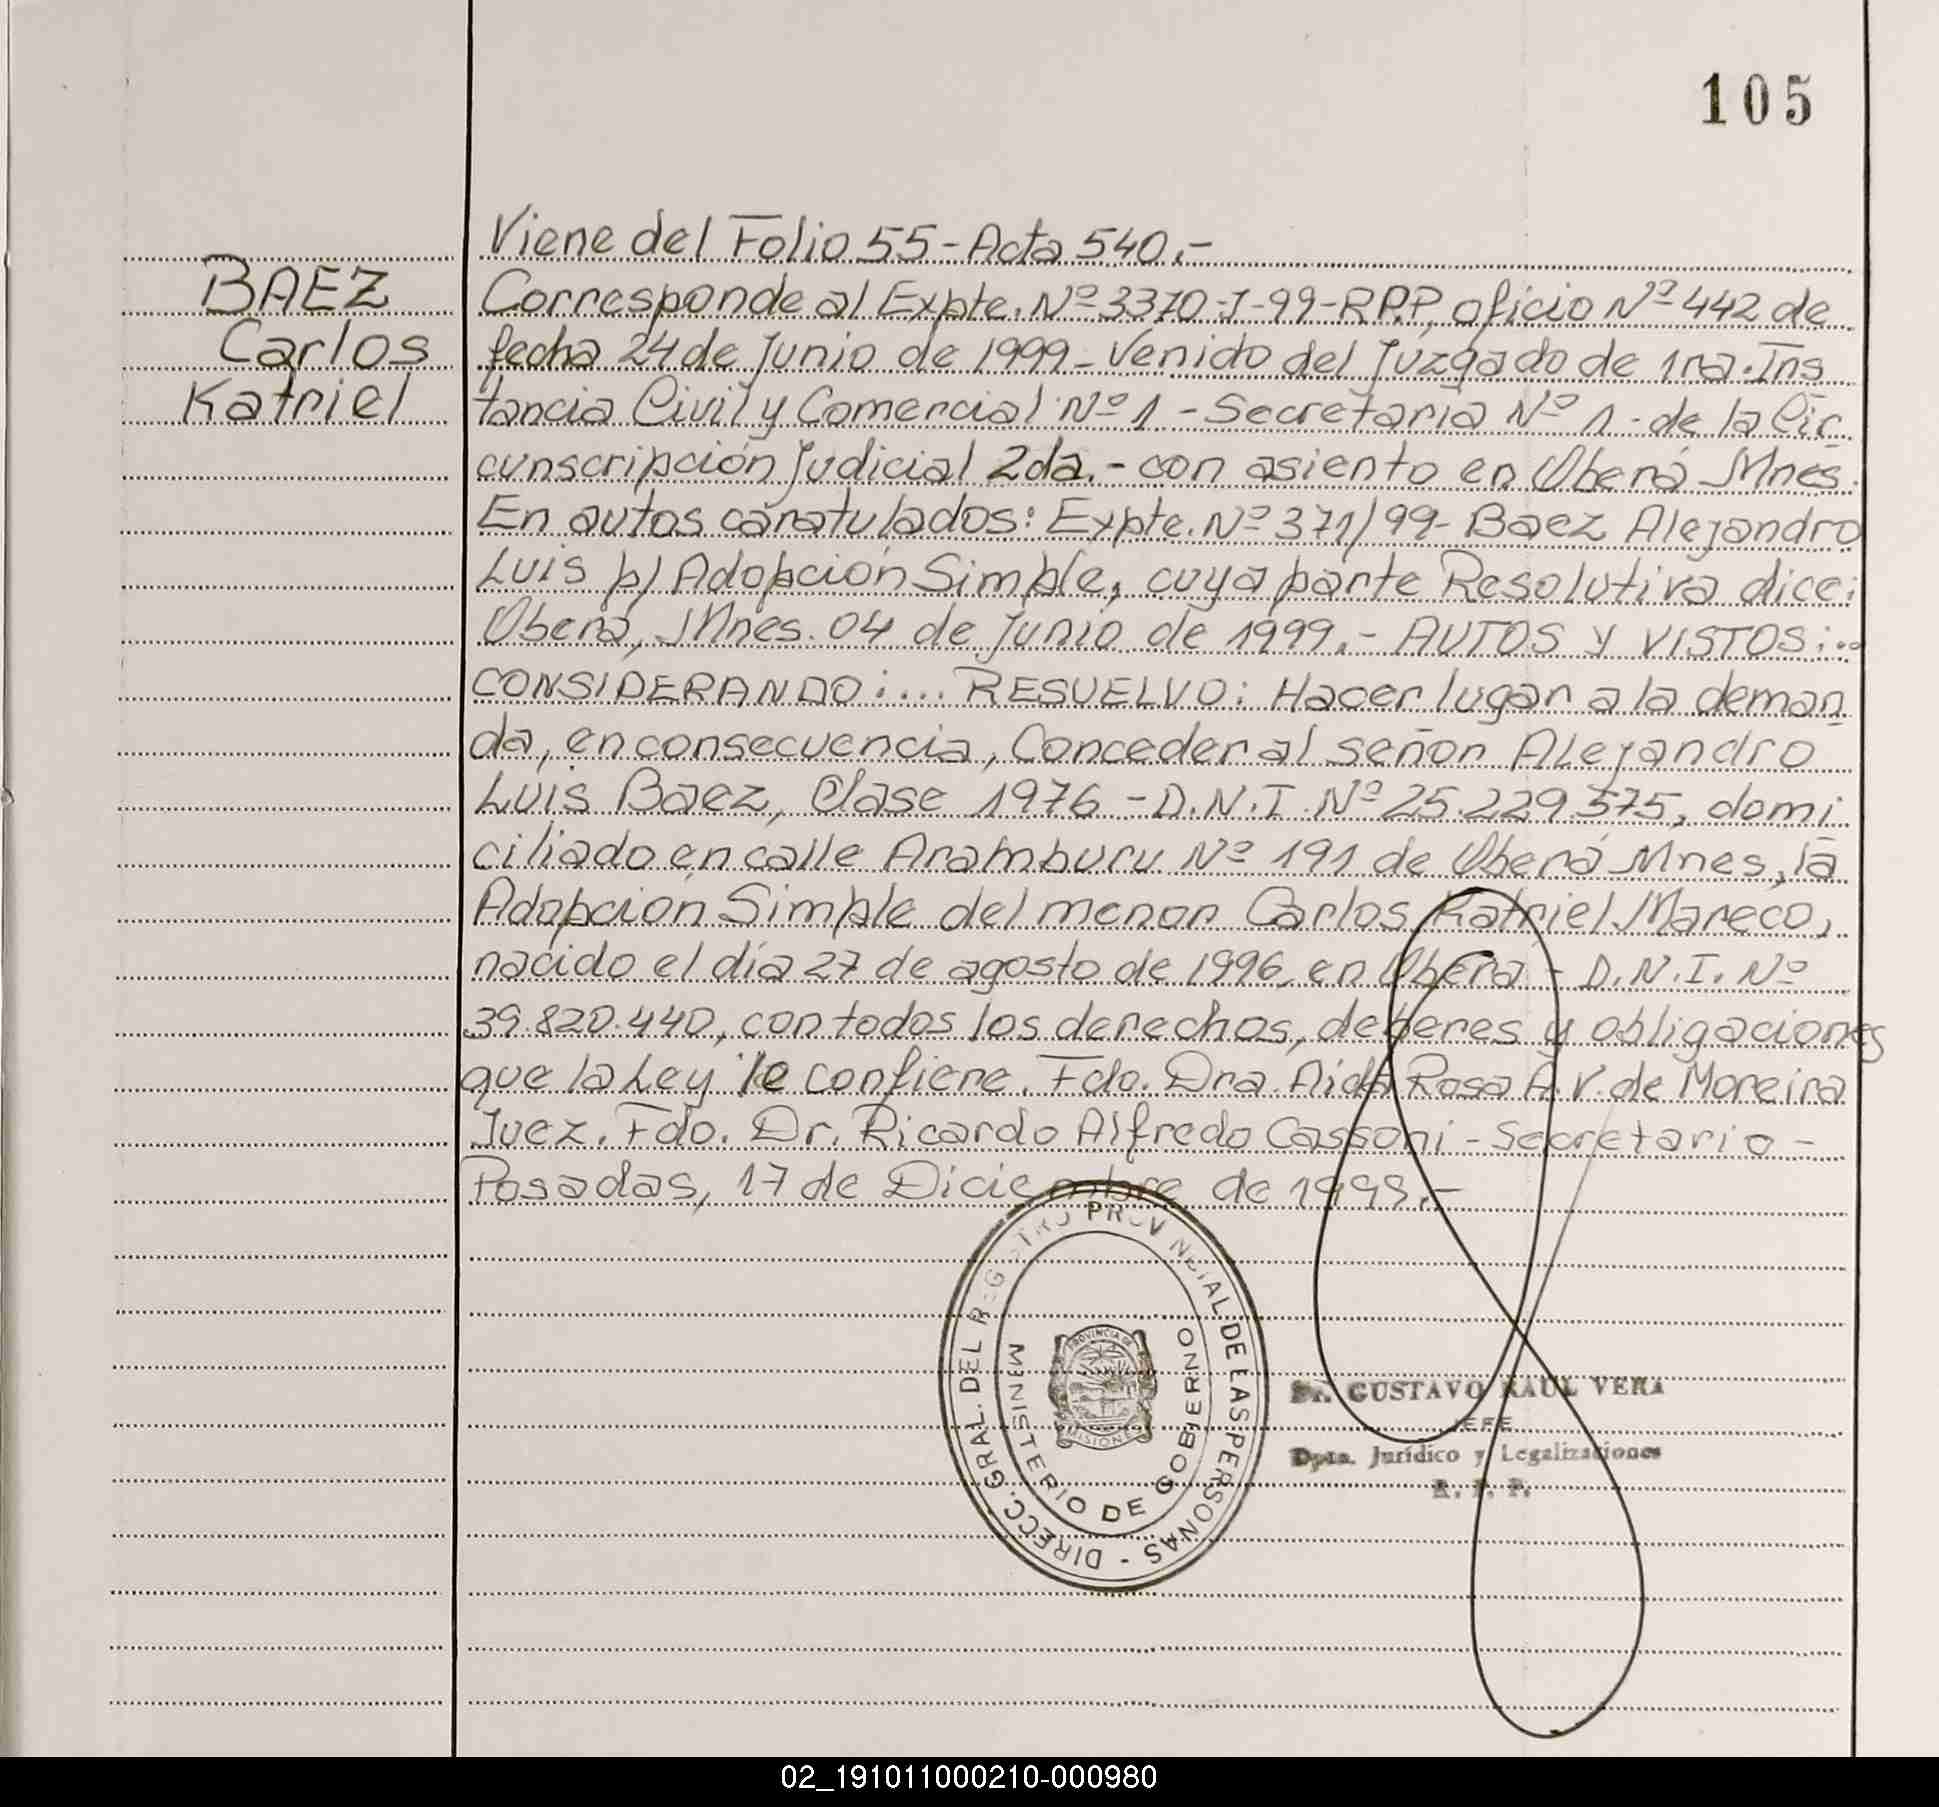 105
BAEZ
Carlos
Katriel
Viene del Folio 55-Acta 540.-
Corresponde al Expte. Nº 3370-J-99-R.P.P, oficio Nº 442 de
fecha 24 de Junio de 1999- Venido del Juzgado de 1ra. Ins
tancia Civil y Comercial Nº 1 - Secretaria Nº 1 - de la Cir
cunscripción Judicial 2da.- con asiento en Oberá Mnes.
En autos caratulados: Expte. Nº 371/99- Baez Alejandro
Luis p/ Adopción Simple, cuya parte Resolutiva dice:
Oberá, Mnes. 04 de Junio de 1999.- AUTOS Y VISTOS:...
CONSIDERANDO:.... RESUELVO: Hacer lugar a la deman
da, en consecuencia, Conceder al señor Alejandro
Luis Baez, Clase 1976 - D.N.I. Nº 25.229.575, domi
ciliado en calle Aramburu Nº 191 de Oberá Mnes, la
Adopción Simple del menor Carlos Katriel Mareco,
nacido el día 27 de agosto de 1996, en Oberá - D.N.I. Nº
39.820.440, con todos los derechos, deberes y obligaciones
que la Ley le confiere. Fdo. Dra. Aida Rosa A.V. de Moreira
Juez. Fdo. Dr. Ricardo Alfredo Cassoni - Secretario -
Posadas, 17 de Diciembre de 1999.-
DIRECC. GRAL. DEL REGISTRO PROVINCIAL DE LAS PERSONAS -
MINISTERIO DE GOBIERNO
PROVINCIA DE
MISIONES
Dr. GUSTAVO RAUL VERA
JEFE
Dpto. Jurídico y Legalizaciones
R. P. P.
02_191011000210-000980